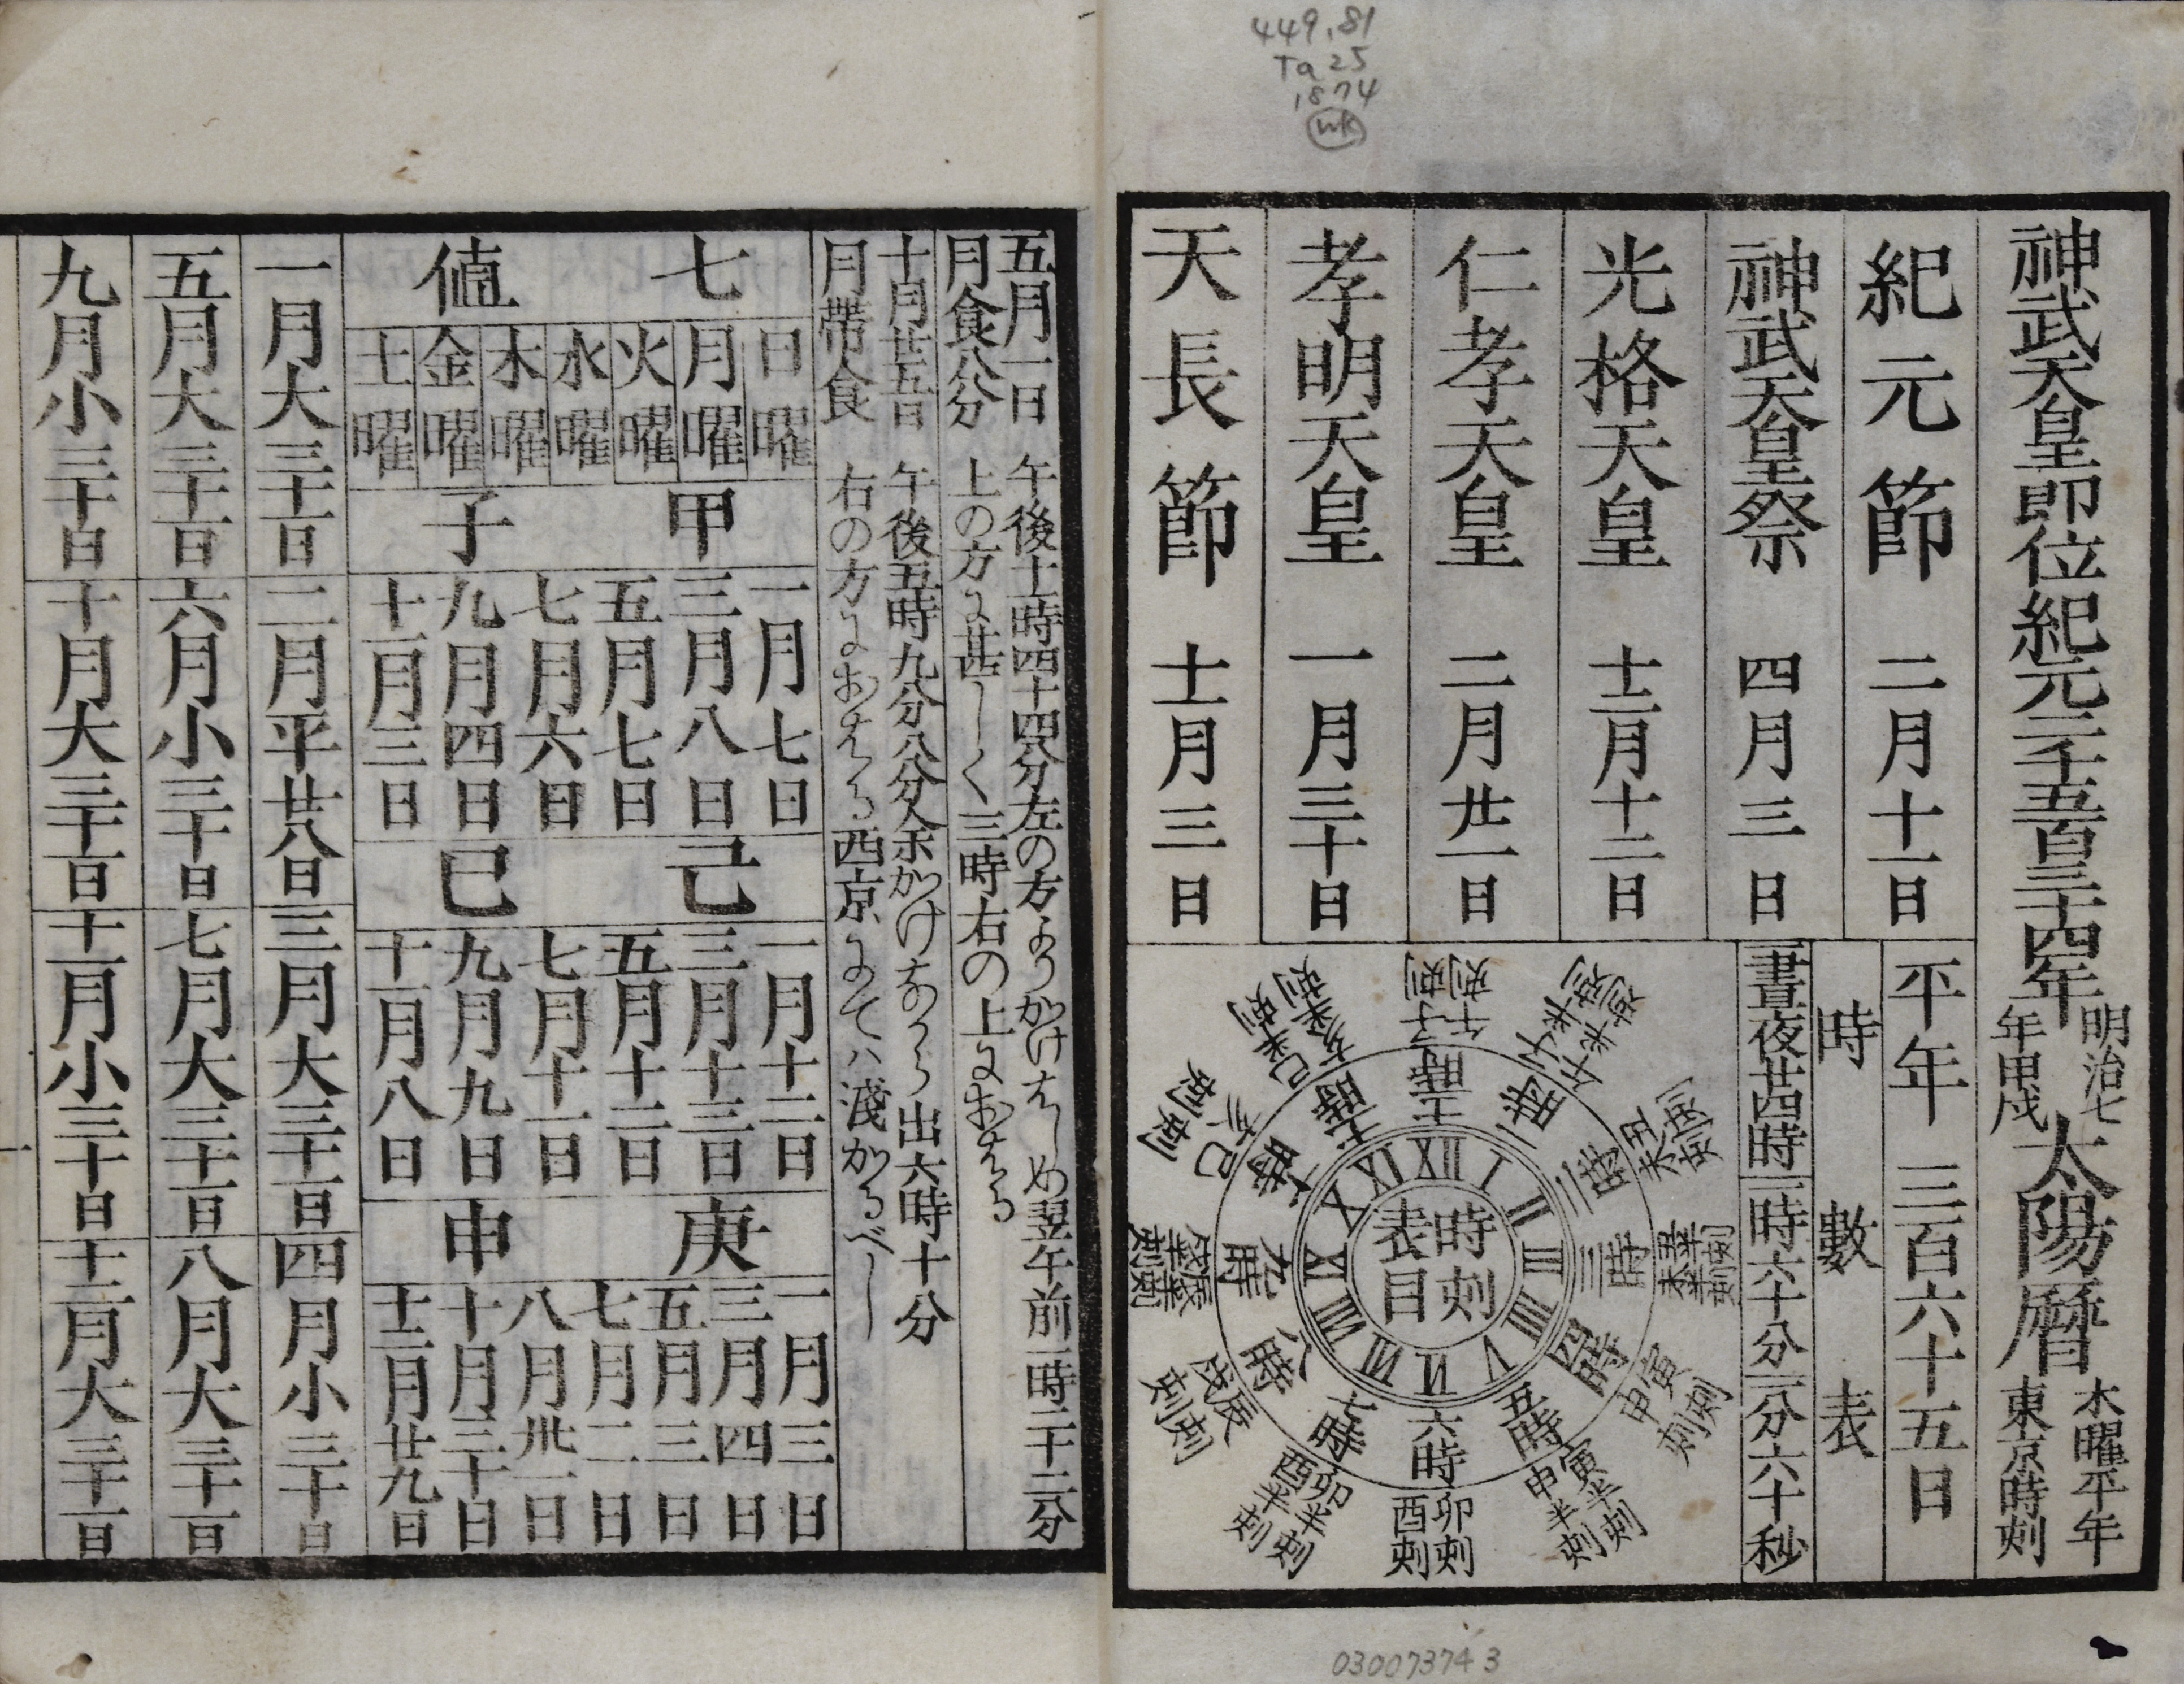 449.81
Ta 25
1874
神武天皇即位紀元二千五百三十四年
明治七
年甲戌
太陽暦
木曜平年
東京時刻
紀元節 二月十一日
神武天皇祭 四月三日
光格天皇 十二月十二日
仁孝天皇 二月廿一日
孝明天皇 一月三十日
天長節 十一月三日
平年 三百六十五日
時數表
一晝夜廿四時
一時六十分
一分六十秒
時刻
表目
XII
I
II
III
IIII
V
VI
VII
VIII
IX
X
XI
十二時
一時
二時
三時
四時
五時
六時
七時
八時
九時
十時
十一時
午刻
子刻
午半刻
子半刻
丑刻
未刻
丑半刻
未半刻
寅刻
申刻
寅半刻
申半刻
卯刻
酉刻
卯半刻
酉半刻
辰刻
戌刻
辰半刻
戌半刻
巳刻
亥刻
巳半刻
亥半刻
030073743
五月一日
月食八分
午後十一時四十四分左の方よりかけはしめ翌午前一時二十二分
上の方に甚しく三時右の上におはる
十月廿五日
月帶食
午後五時九分八分余かけなから出六時十分
右の方におはる西京にてハ淺かるべし
七値
日曜
月曜
火曜
水曜
木曜
金曜
土曜
甲子
一月七日
三月八日
五月七日
七月六日
九月四日
十一月三日
己巳
一月十二日
三月十三日
五月十二日
七月十一日
九月九日
十一月八日
庚申
一月三日
三月四日
五月三日
七月二日
八月卅一日
十月三十日
十二月廿九日
一月大三十一日
二月平廿八日
三月大三十一日
四月小三十日
五月大三十一日
六月小三十日
七月大三十一日
八月大三十一日
九月小三十日
十月大三十一日
十一月小三十日
十二月大三十一日
一